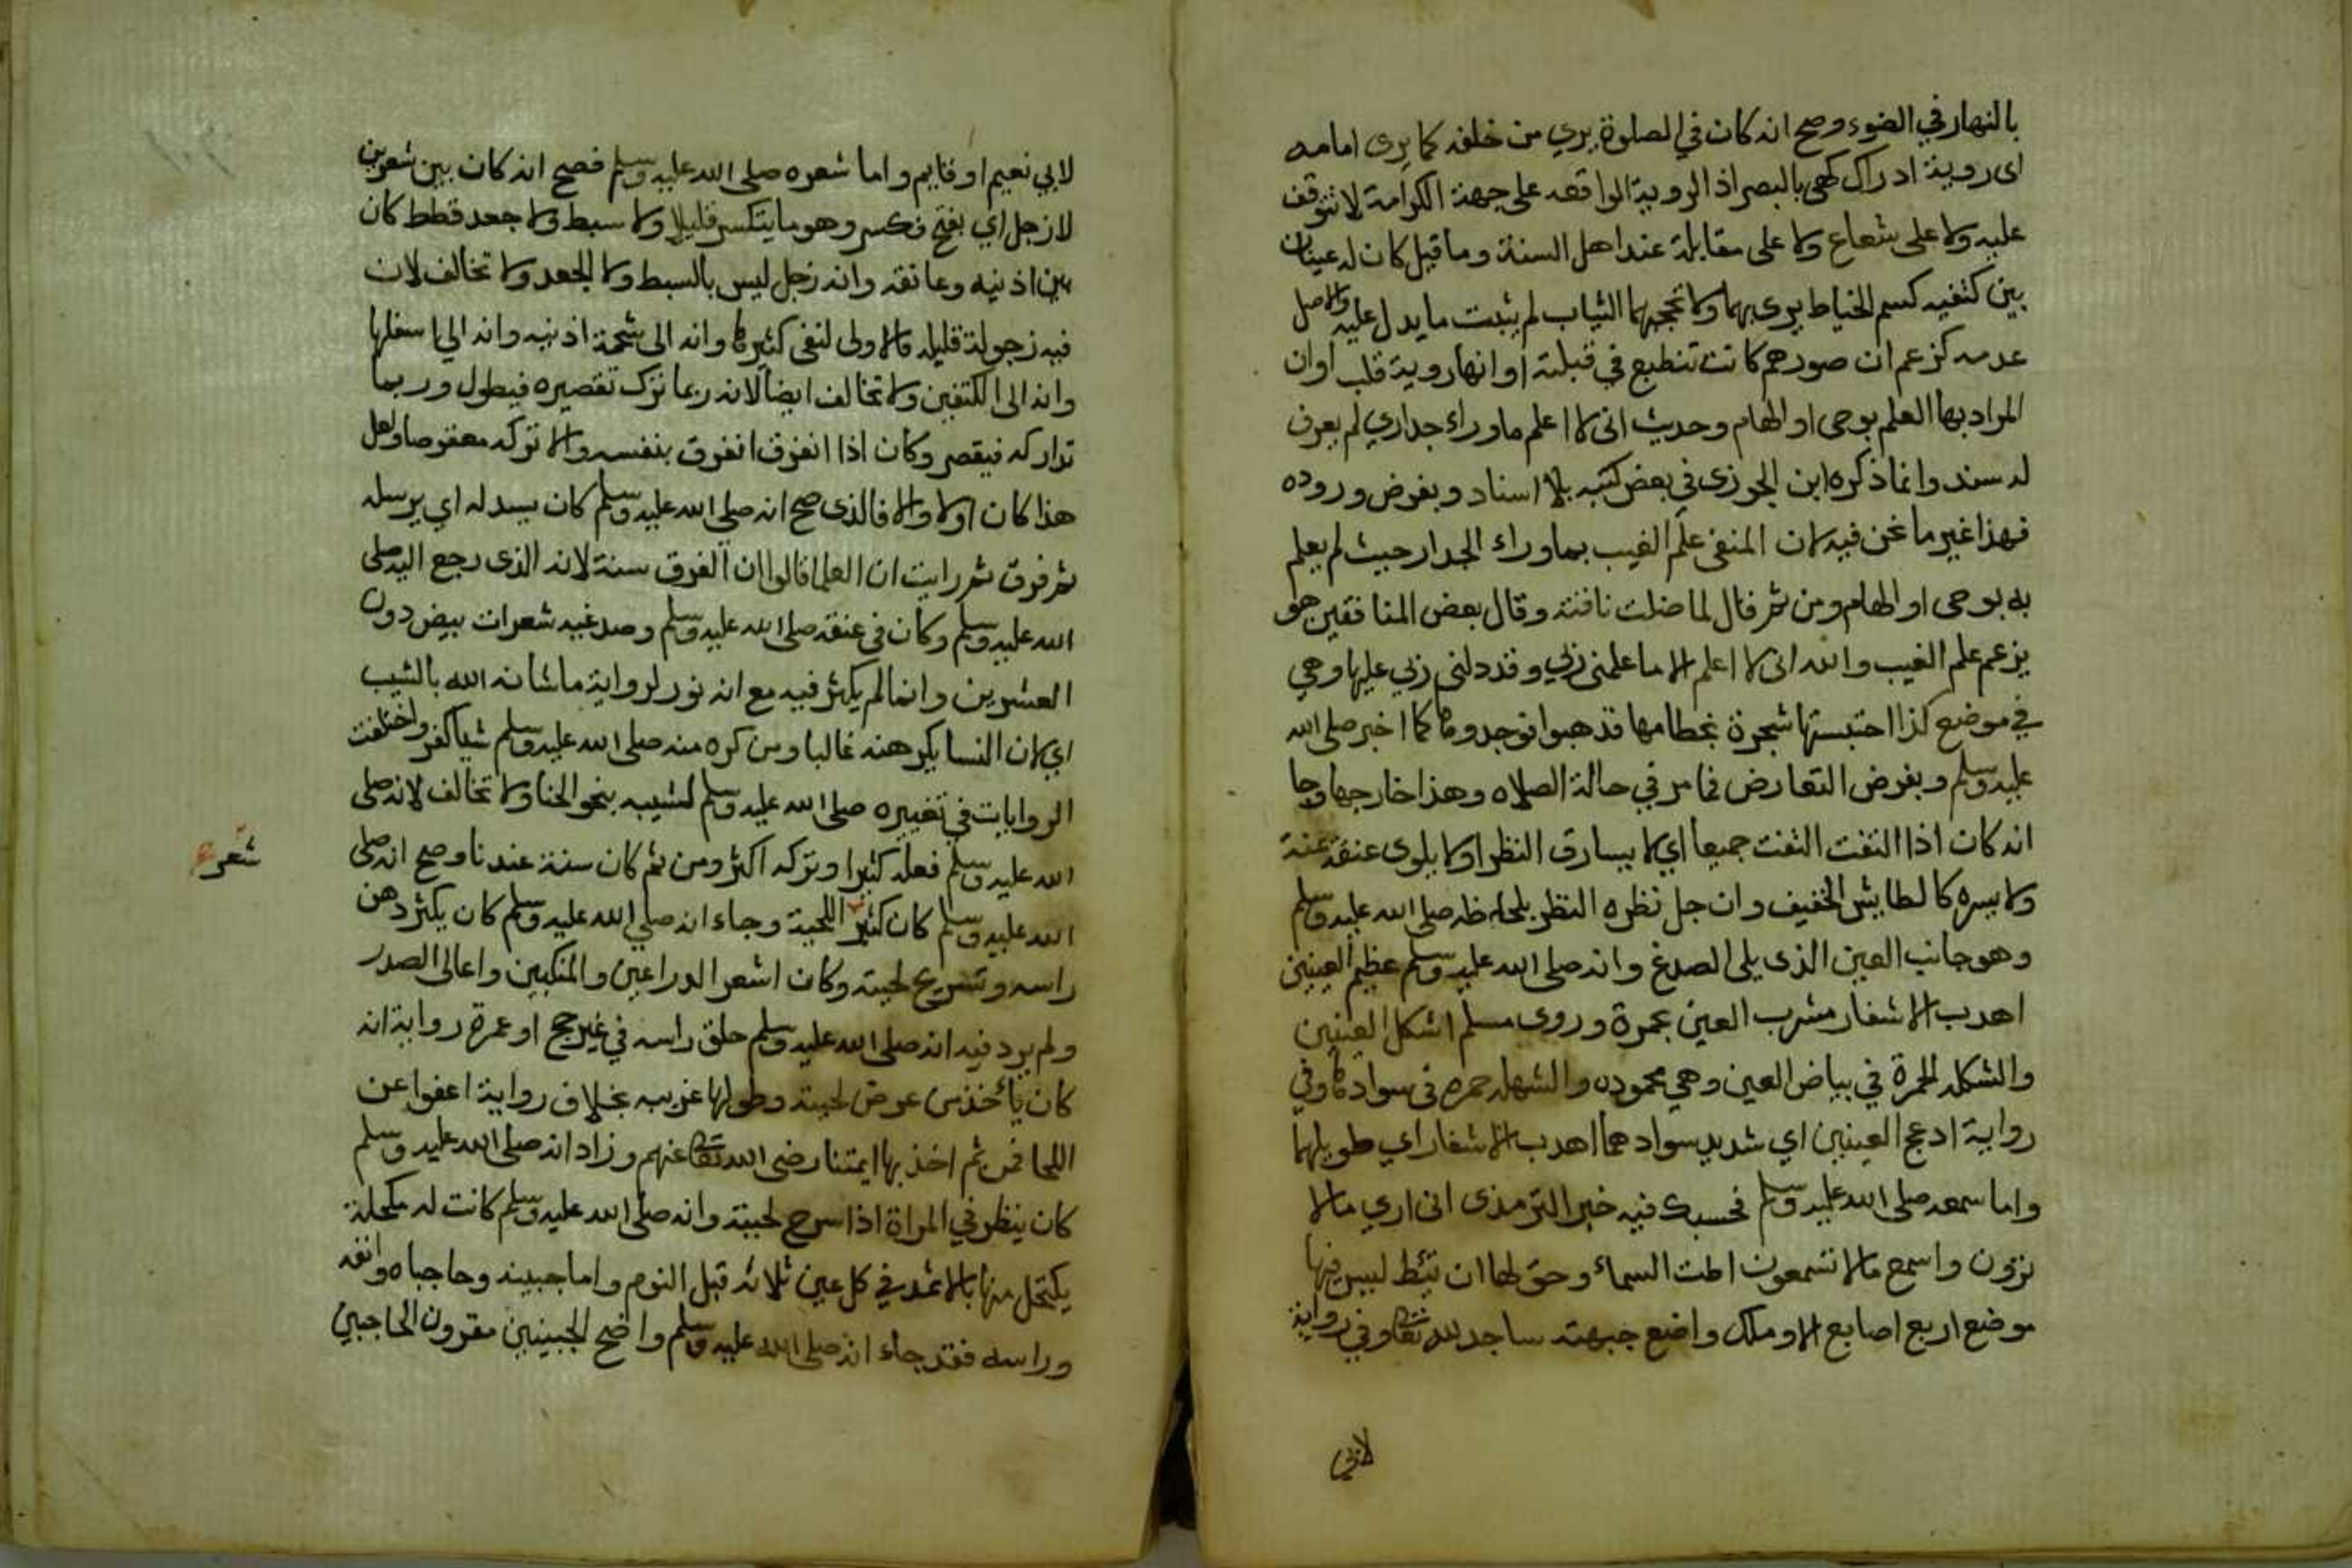 بالنهار في الضوء وصح انه كان في الصلوة يري من خلفه كما يرى امامه
اى روية ادراك كهى بالبصر اذ الروية الواقعه على جهة الكرامة لا تتوقف
عليه ولا على شعاع ولا على مقابلة عند اهل السنة وما قيل كان له عينان
بين كتفيه كسم الخياط يرى بهما ولا تحجبهما الثياب لم يثبت ما يدل عليه والاصل
عدمه كزعم ان صورهم كانت تنطبع في قبلته او انها روية قلب او ان
المراد بها العلم بوحى او الهام وحديث انى لا اعلم ما وراء جداري لم يعرف
له سند وانما ذكره ابن الجوزى في بعض كتبه بلا اسناد وبفرض وروده
فهذا غير ما نحن فيه لان المنفى علم الغيب بما وراء الجدار حيث لم يعلم
به بوحى او الهام ومن ثم قال لما ضلت ناقته وقال بعض المنافقين هو
يزعم علم الغيب والله انى لا اعلم الا ما علمنى ربي وقد دلنى ربي عليها وهي
في موضع كذا احتبستها شجرة بخطامها فذهبوا فوجدوها كما اخبر صلى الله
عليه وسلم وبفرض التعارض فما مر في حالة الصلاه وهذا خارجها وجا
انه كان اذا التفت التفت جميعا اي لا يسارق النظر اولا يلوى عنقه يمنة
ولا يسره كالطايش الخفيف وان جل نظره النظر بلحاظه صلى الله عليه وسلم
وهو جانب العين الذى يلى الصدغ وانه صلى الله عليه وسلم عظيم العينين
اهدب الاشفار مشرب العين بحمرة وروى مسلم اشكل العينين
والشكله الحمرة في بياض العين وهي محموده والشهله حمره فى سوادها وفي
رواية ادعج العينين اي شديد سوادهما اهدب الاشفار اي طويلهما
واما سمعه صلى الله عليه وسلم فحسبك فيه خبر الترمذى انى اري ما لا
ترون واسمع ما لا تسمعون اطت السماء وحق لها ان تئط ليس فيها
موضع اربع اصابع الا وملك واضع جبهته ساجد لله تعالى وفي رواية
لابي
لابي نعيم او قايم واما شعره صلى الله عليه وسلم فصح انه كان بين شعرين
لا رجل اي بفتح فكسر وهو ما يتكسر قليلا ولا سبط ولا جعد قطط كان
بين اذنيه وعاتقه وانه رجل ليس بالسبط ولا الجعد ولا تخالف لان
فيه رجولة قليله فالاولى لنفى كثيرها وانه الى شحمة اذنيه وانه الي اسفلها
وانه الى الكتفين ولا تخالف ايضا لانه ربما ترك تقصيره فيطول وربما
تداركه فيقصر وكان اذا انفرق انفرق بنفسه والا تركه معقوصا ولعل
هذا كان اولا والا فالذى صح انه صلى الله عليه وسلم كان يسدله اي يرسله
ثم فرق ثم رايت ان العلما قالوا ان الفرق سنة لانه الذى رجع اليه صلى
الله عليه وسلم وكان في عنقه صلى الله عليه وسلم وصدغيه شعرات بيض دون
العشرين وانما لم يكثر فيه مع انه نور لرواية ما شانه الله بالشيب
اي لان النسا يكرهنه غالبا ومن كره منه صلى الله عليه وسلم شيا كفر واختلفت
الروايات في تغييره صلى الله عليه وسلم لشيبه بنحو الحنا ولا تخالف لانه صلى
الله عليه وسلم فعله كثيرا وتركه اكثر ومن ثم كان سنة عندنا وصح انه صلى
شعر
الله عليه وسلم كان كثير اللحية وجاء انه صلي الله عليه وسلم كان يكثر دهن
راسه وتسريح لحيته وكان اشعر الدراعين والمنكبين واعالى الصدر
ولم يرد فيه انه صلى الله عليه وسلم حلق راسه في غير حج او عمرة رواية انه
كان يأخذ من عرض لحيته وطولها غريبه بخلاف رواية اعفوا عن
اللحا فمن ثم اخذ بها ايمتنا رضى الله تعالى عنهم وزاد انه صلى الله عليه وسلم
كان ينظر في المراة اذا سرح لحيته وانه صلى الله عليه وسلم كانت له مكحلة
يكتحل منها بالاثمد في كل عين ثلاثه قبل النوم واما جبينه وحاجباه وانفه
وراسه فقد جاء انه صلى الله عليه وسلم واضح الجبينين مقرون الحاجبين